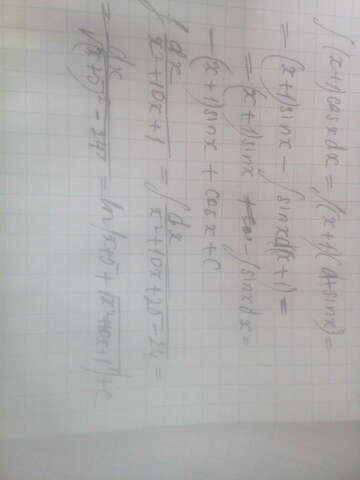 ∫(x+1)cosxdx = ∫(x+1)(d+sinx) =
= (x+1)sinx - ∫sinxd(x+1) =
= (x+1)sinx - ∫sinxdx =
- (x+1)sinx + cosx + C
∫dx/√(x²+10x+1) = ∫dx/√(x²+10x+25-24) =
= ∫dx/√((x+5)²-24) = ln|x+5+√(x²+10x+1)|+C